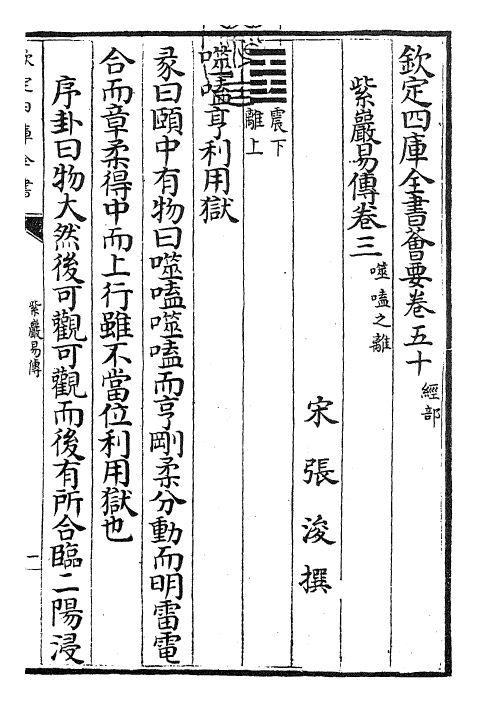 欽定四庫全書薈要卷五十 經部
紫巖易傳卷三 噬嗑之離
宋張浚撰
䷔ 震下 離上
噬嗑亨利用獄
彖曰頤中有物曰噬嗑噬嗑而亨剛柔分動而明雷電
合而章柔得中而上行雖不當位利用獄也
序卦曰物大然後可觀可觀而後有所合臨二陽浸
欽定四庫全書
紫巖易傳
一